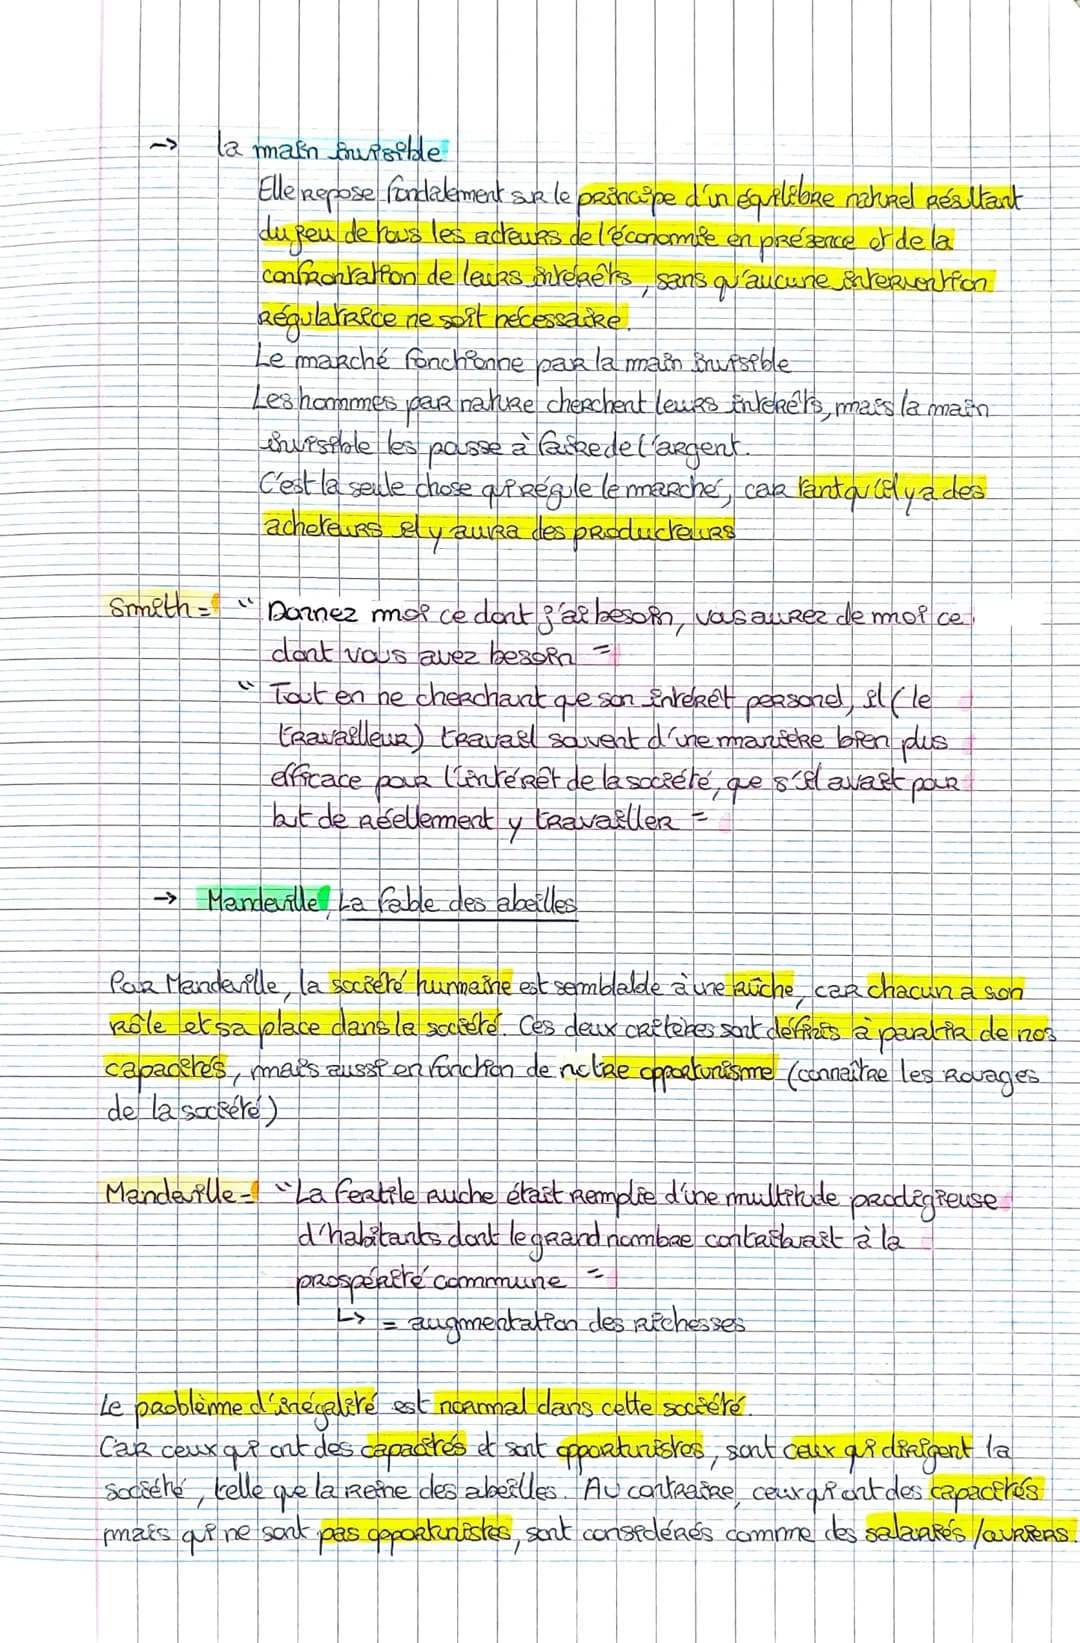 -> la main invisible
Elle repose fondalement sur le principe d'un équilibre naturel résultant
du jeu de tous les acteurs de l'économie en présence et de la
confrontation de leurs intérêts, sans qu'aucune intervention
régulatrice ne soit nécessaire.
Le marché fonctionne par la main invisible
Les hommes par nature cherchent leurs intérêts, mais la main
invisible les pousse à faire de l'argent.
C'est la seule chose qui régule le marché, car tant qu'il y a des
acheteurs il y aura des producteurs
Smith = " Donnez moi ce dont j'ai besoin, vous aurez de moi ce
dont vous avez besoin "
" Tout en ne cherchant que son intérêt personel, il ( le
travailleur) travail souvent d'une manière bien plus
efficace pour l'intérêt de la société, que s'il avait pour
but de réellement y travailler "
-> Mandeville, La fable des abeilles
Pour Mandeville, la société humaine est semblalde à une rûche, car chacun a son
rôle et sa place dans la société. Ces deux critères sont définis à partir de nos
capacités, mais aussi en fonction de notre opportunisme (connaître les rouages
de la société)
Mandeville = "La fertile ruche était remplie d'une multitude prodigieuse
d'habitants dont le grand nombre contribuait à la
prospérité commune "
↳ = augmentation des richesses
Le problème d'inégalité est normal dans cette société.
Car ceux qui ont des capacités et sont opportunistes, sont ceux qui dirigent la
société, telle que la Reine des abeilles. Au contraire, ceux qui ont des capacités
mais qui ne sont pas opportunistes, sont considérés comme des salariés /ouvriers.